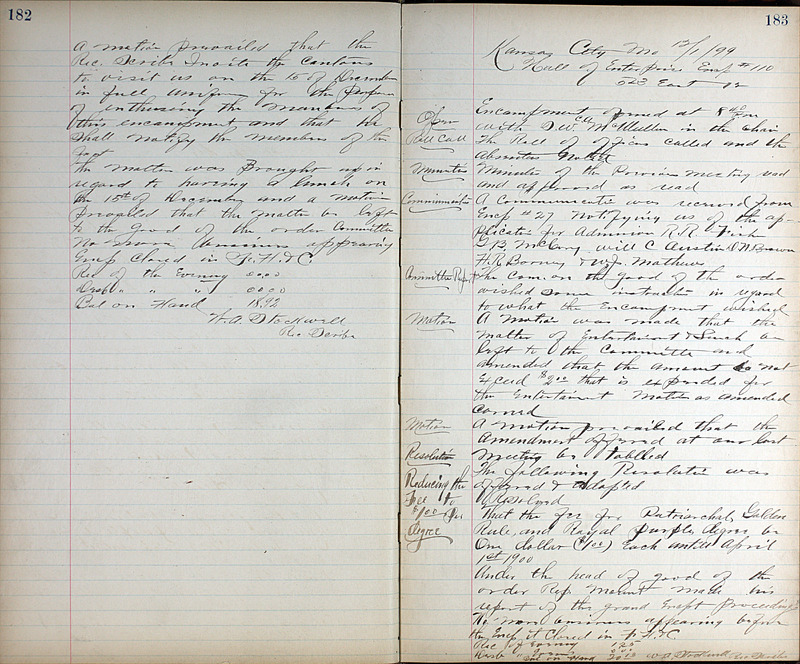 182
A motion prevailed that the
Rec. Scribe Invite the Cantons
to visit us on the 15 of December
in full uniform for the purpose
of enthusing the members of
this encampment and that he
shall notify the members of the
fact
The matter was Brought up in
regard to having a lunch on
the 15th of December and a motion
prevailed that the matter be left
to the Good of the order Committee
No business appearing
Encp Closed in F. H & C.
Rec of the Evening 00.00
Disb " " " 00.00
Bal on Hand 18.92
W. A. Stockwell
Rec Scribe
183
Kansas City Mo 12/1/99
Hall of Enterprise Encp # 110
523 East 12
Open
Encampment opened at 8
with McMullen in the chair
Roll Call
The Roll of officers called and the
absentees Noted
Minutes
Minutes of the Previous meeting read
and approved as read
A Communication was received from
Encp # 27 Notifying us of the ap-
plication for Admission R.R.
will C Austin Brown
H. R. Barney & W. J. Mathews
Committee Report
The Com on the good of the order
wished some instruction in regard
to what the Encampment wished
Motion
A motion was made that the
matter of Entertainment & Lunch be
left to the Committee and
amended that the amount to not
Exceed that is expended for
the Entertainment Motion as amended
carried
Motion
A motion prevailed that the
Amendment offered at our last
meeting be tablled
Resolution
The following Resolution was
offered & Adopted
Reducing the
Fee to
$1.00 Per
Degree
Resolved
That the fee for Patriarchal, Golden
Rule, and Royal Purple degree be
One dollar ($1.00) Each untill April
1st 1900
Under the head of good of the
order Rep made his
report of the grand Encpt Proceedings
No more business appearing before
the Encpt it Closed in F. H & C
Rec of Evening 1.25
Bal on Hand W A Stockwell Rec Scribe